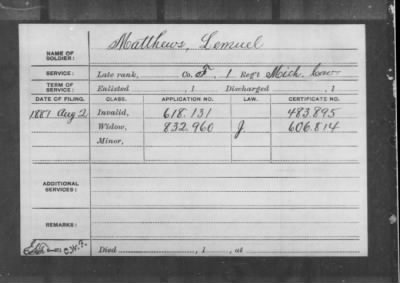 NAME OF SOLDIER: Matthews, Lemuel
SERVICE: Late rank, Co. F, 1 Reg't Mich. Cav
TERM OF SERVICE: Enlisted , 1 Discharged , 1
DATE OF FILING. CLASS. APPLICATION NO. LAW. CERTIFICATE NO.
1887 Aug 2 Invalid, 618.131 483.895
Widow, 832.960 J. 606.814
Minor,
ADDITIONAL SERVICES:
REMARKS:
Died , 1 , at